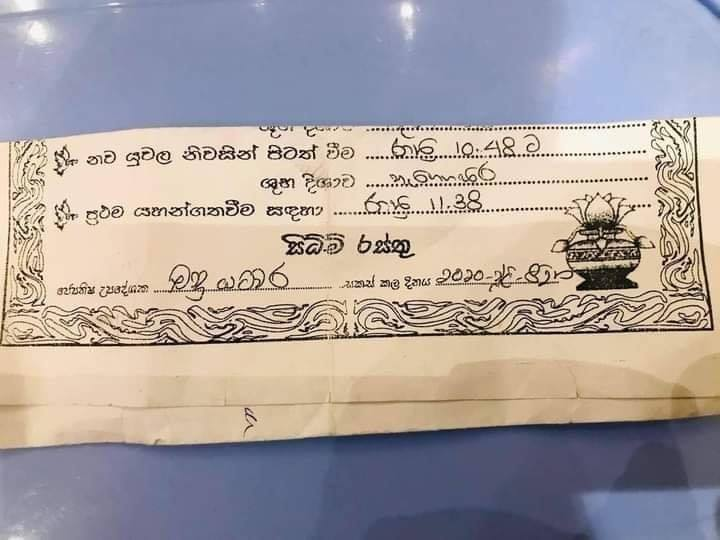 නව යුවල නිවසින් පිටත් වීම රාත්‍රි 10.48 ට
ශුභ දිශාව
ප්‍රථම යහන්ගතවීම සඳහා රාත්‍රි 11.38
සිධිමි රස්තු
ජ්‍යොතිෂ උපදේශක සකස් කල දිනය 2020